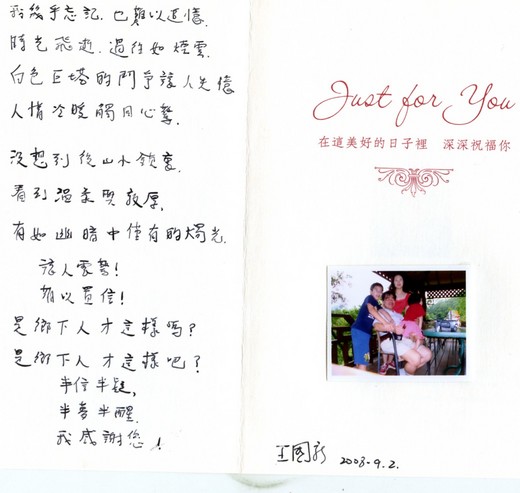 我幾乎忘記, 已難以追憶.
時光飛逝, 過往如煙雲.
白色巨塔的鬥爭讓人失憶
人情冷暖觸目心驚.
沒想到後山小裏
看到溫柔與敦厚.
有如幽暗中僅有的燭光.
讓人!
難以置信!
是鄉下人才這樣嗎?
是鄉下人才這樣吧?
半信半疑,
半半醒.
我感謝您!
Just for You
在這美好的日子裡 深深祝福你
王國新 2008-9.2.